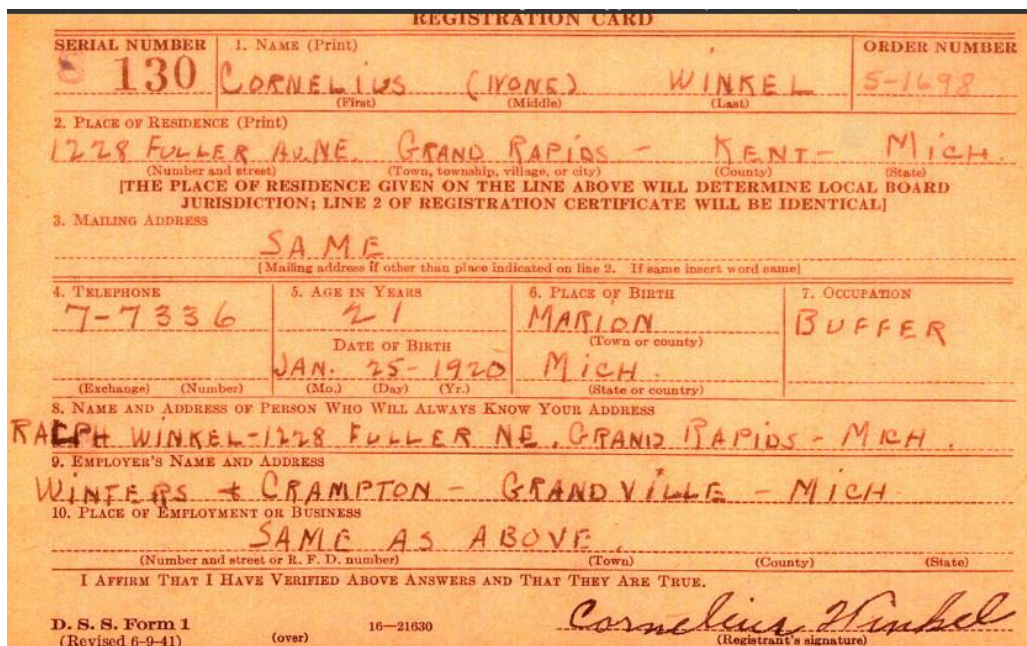 REGISTRATION CARD
SERIAL NUMBER 1. NAME (Print) ORDER NUMBER
130 CORNELIUS (NONE) WINKEL S-1698
(First) (Middle) (Last)
2. PLACE OF RESIDENCE (Print)
1228 FULLER AV. NE. GRAND RAPIDS - KENT - MICH.
(Number and street) (Town, township, village, or city) (County) (State)
[THE PLACE OF RESIDENCE GIVEN ON THE LINE ABOVE WILL DETERMINE LOCAL BOARD
JURISDICTION; LINE 2 OF REGISTRATION CERTIFICATE WILL BE IDENTICAL]
3. MAILING ADDRESS
SAME
[Mailing address if other than place indicated on line 2. If same insert word same]
4. TELEPHONE 5. AGE IN YEARS 6. PLACE OF BIRTH 7. OCCUPATION
7-7336 21 MARION BUFFER
(Town or county)
DATE OF BIRTH
JAN. 25-1920 MICH.
(Exchange) (Number) (Mo.) (Day) (Yr.) (State or country)
8. NAME AND ADDRESS OF PERSON WHO WILL ALWAYS KNOW YOUR ADDRESS
RALPH WINKEL-1228 FULLER NE. GRAND RAPIDS - MICH.
9. EMPLOYER'S NAME AND ADDRESS
WINTERS + CRAMPTON - GRANDVILLE - MICH
10. PLACE OF EMPLOYMENT OR BUSINESS
SAME AS ABOVE.
(Number and street or R. F. D. number) (Town) (County) (State)
I AFFIRM THAT I HAVE VERIFIED ABOVE ANSWERS AND THAT THEY ARE TRUE.
Cornelius Winkel
D. S. S. Form 1
(Revised 6-9-41) (over) 16—21630 (Registrant's signature)